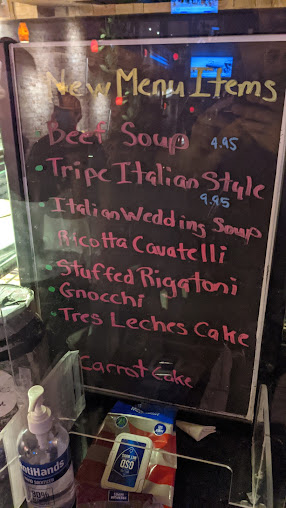 New Menu Items
Beef Soup 9.95
Tripe Italian Style
9.95
Italian Wedding Soup
Ricotta Cavatelli
Stuffed Rigatoni
Gnocchi
Tres Leches Cake
Carrot Cake
ntiHands